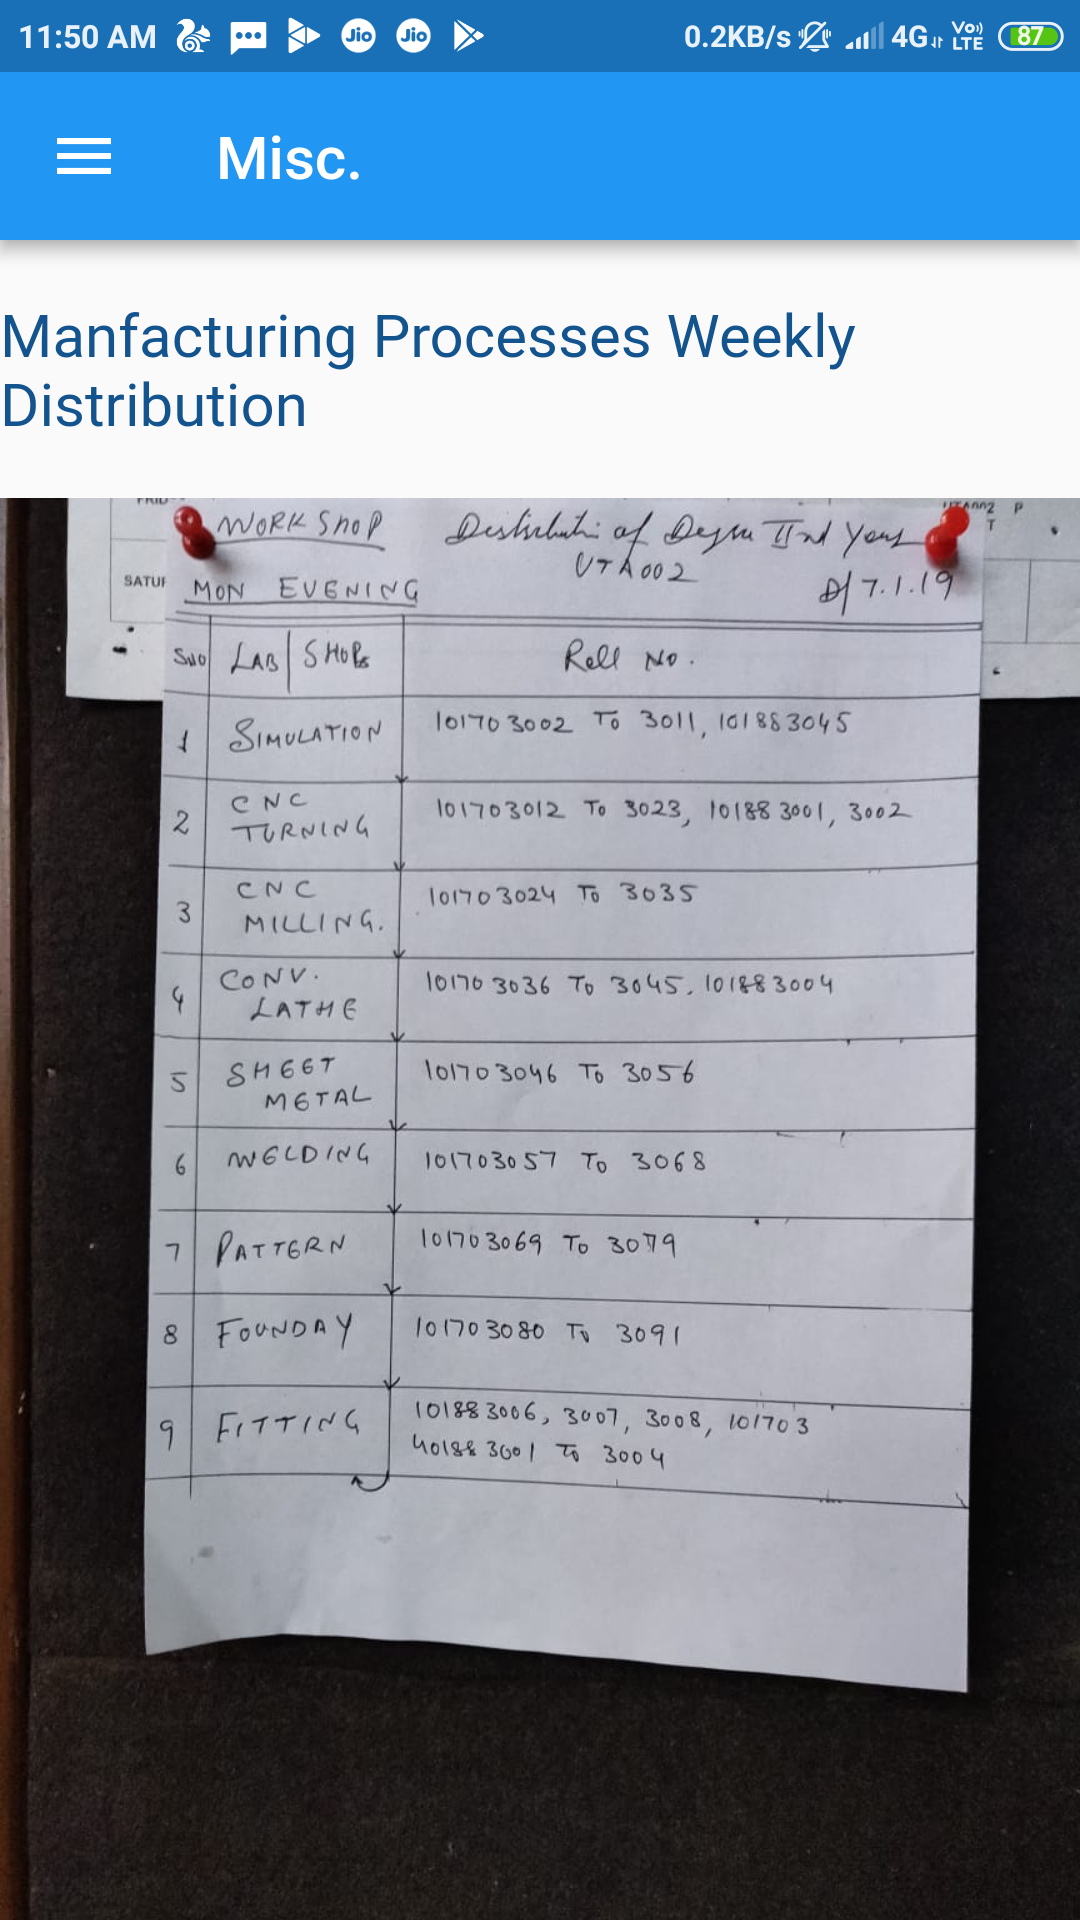 11:50 AM
0.2KB/s 4G VoLTE 87
Misc.
Manfacturing Processes Weekly
Distribution
WORKSHOP Distribution of Degree IInd Year
UTA002
MON EVENING D/ 7.1.19
SATUR
UTA002 P
T
SNO LAB SHOPS Roll No.
1 SIMULATION 101703002 To 3011, 101883045
2 CNC
TURNING 101703012 To 3023, 101883001, 3002
3 CNC
MILLING. 101703024 To 3035
4 CONV.
LATHE 101703036 To 3045. 101883004
5 SHEET
METAL 101703046 To 3056
6 WELDING 101703057 To 3068
7 PATTERN 101703069 To 3079
8 FOUNDAY 101703080 To 3091
9 FITTING 101883006, 3007, 3008, 101703
401883001 To 3004